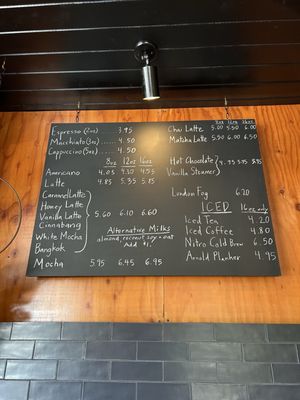 Espresso (2oz) 3.95
Macchiato (3oz) ...... 4.50
Cappuccino (5oz) .... 4.50
8oz 12oz 16oz
Americano 4.05 4.30 4.55
Latte 4.85 5.35 5.85
Caramel Latte
Honey Latte
Vanilla Latte
Cinnabang
White Mocha
Bangkok
5.60 6.10 6.60
Alternative Milks
almond, coconut, soy + oat
Add $1.
Mocha 5.95 6.45 6.95
8oz 12oz 16oz
Chai Latte 5.00 5.50 6.00
Matcha Latte 5.50 6.00 6.50
Hot Chocolate
Vanilla Steamer
London Fog 6.20
ICED 16oz only
Iced Tea 4.20
Iced Coffee 4.80
Nitro Cold Brew 6.50
Arnold Plamker 4.95